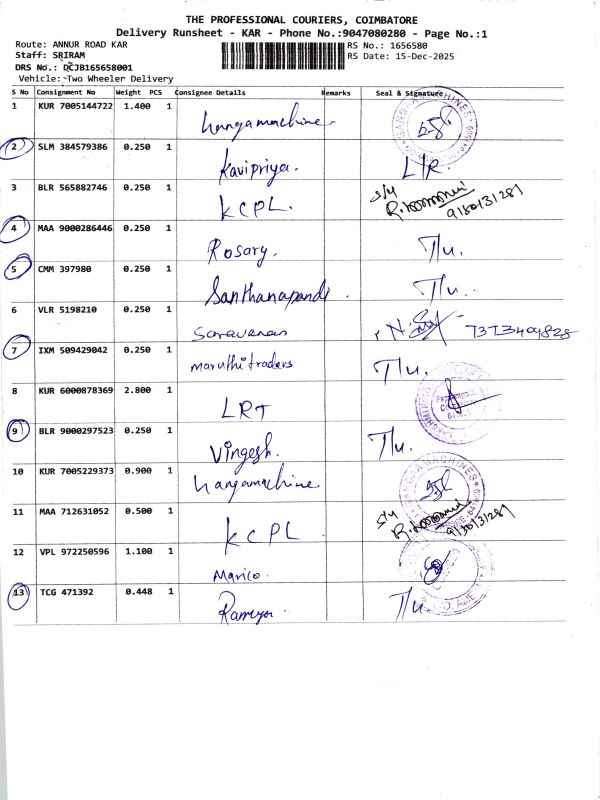 THE PROFESSIONAL COURIERS, COIMBATORE
Delivery Runsheet - KAR - Phone No.:9047080280 - Page No.:1
Route: ANNUR ROAD KAR RS No.: 1656580
Staff: SRIRAM RS Date: 15-Dec-2025
DRS No.: DCJB165658001
Vehicle: Two Wheeler Delivery
S No Consignment No Weight PCS Consignee Details Remarks Seal & Signature
1 KUR 7005144722 1.400 1
2 SLM 384579386 0.250 1 Kavipriya. L/R.
3 BLR 565882746 0.250 1 KCPL. 9180131289
4 MAA 9000286446 0.250 1 Rosary. T/u.
5 CMM 397980 0.250 1 Santhanapandi. T/u.
6 VLR 5198210 0.250 1 Saravanan
7 IXM 509429042 0.250 1 maruthi traders T/u.
8 KUR 6000878369 2.800 1 LRT
9 BLR 9000297523 0.250 1 Vingesh. T/u.
10 KUR 7005229373 0.900 1 MACHINES
11 MAA 712631052 0.500 1 KCPL
12 VPL 972250596 1.100 1 Marico.
13 TCG 471392 0.448 1 Ramya. T/u.